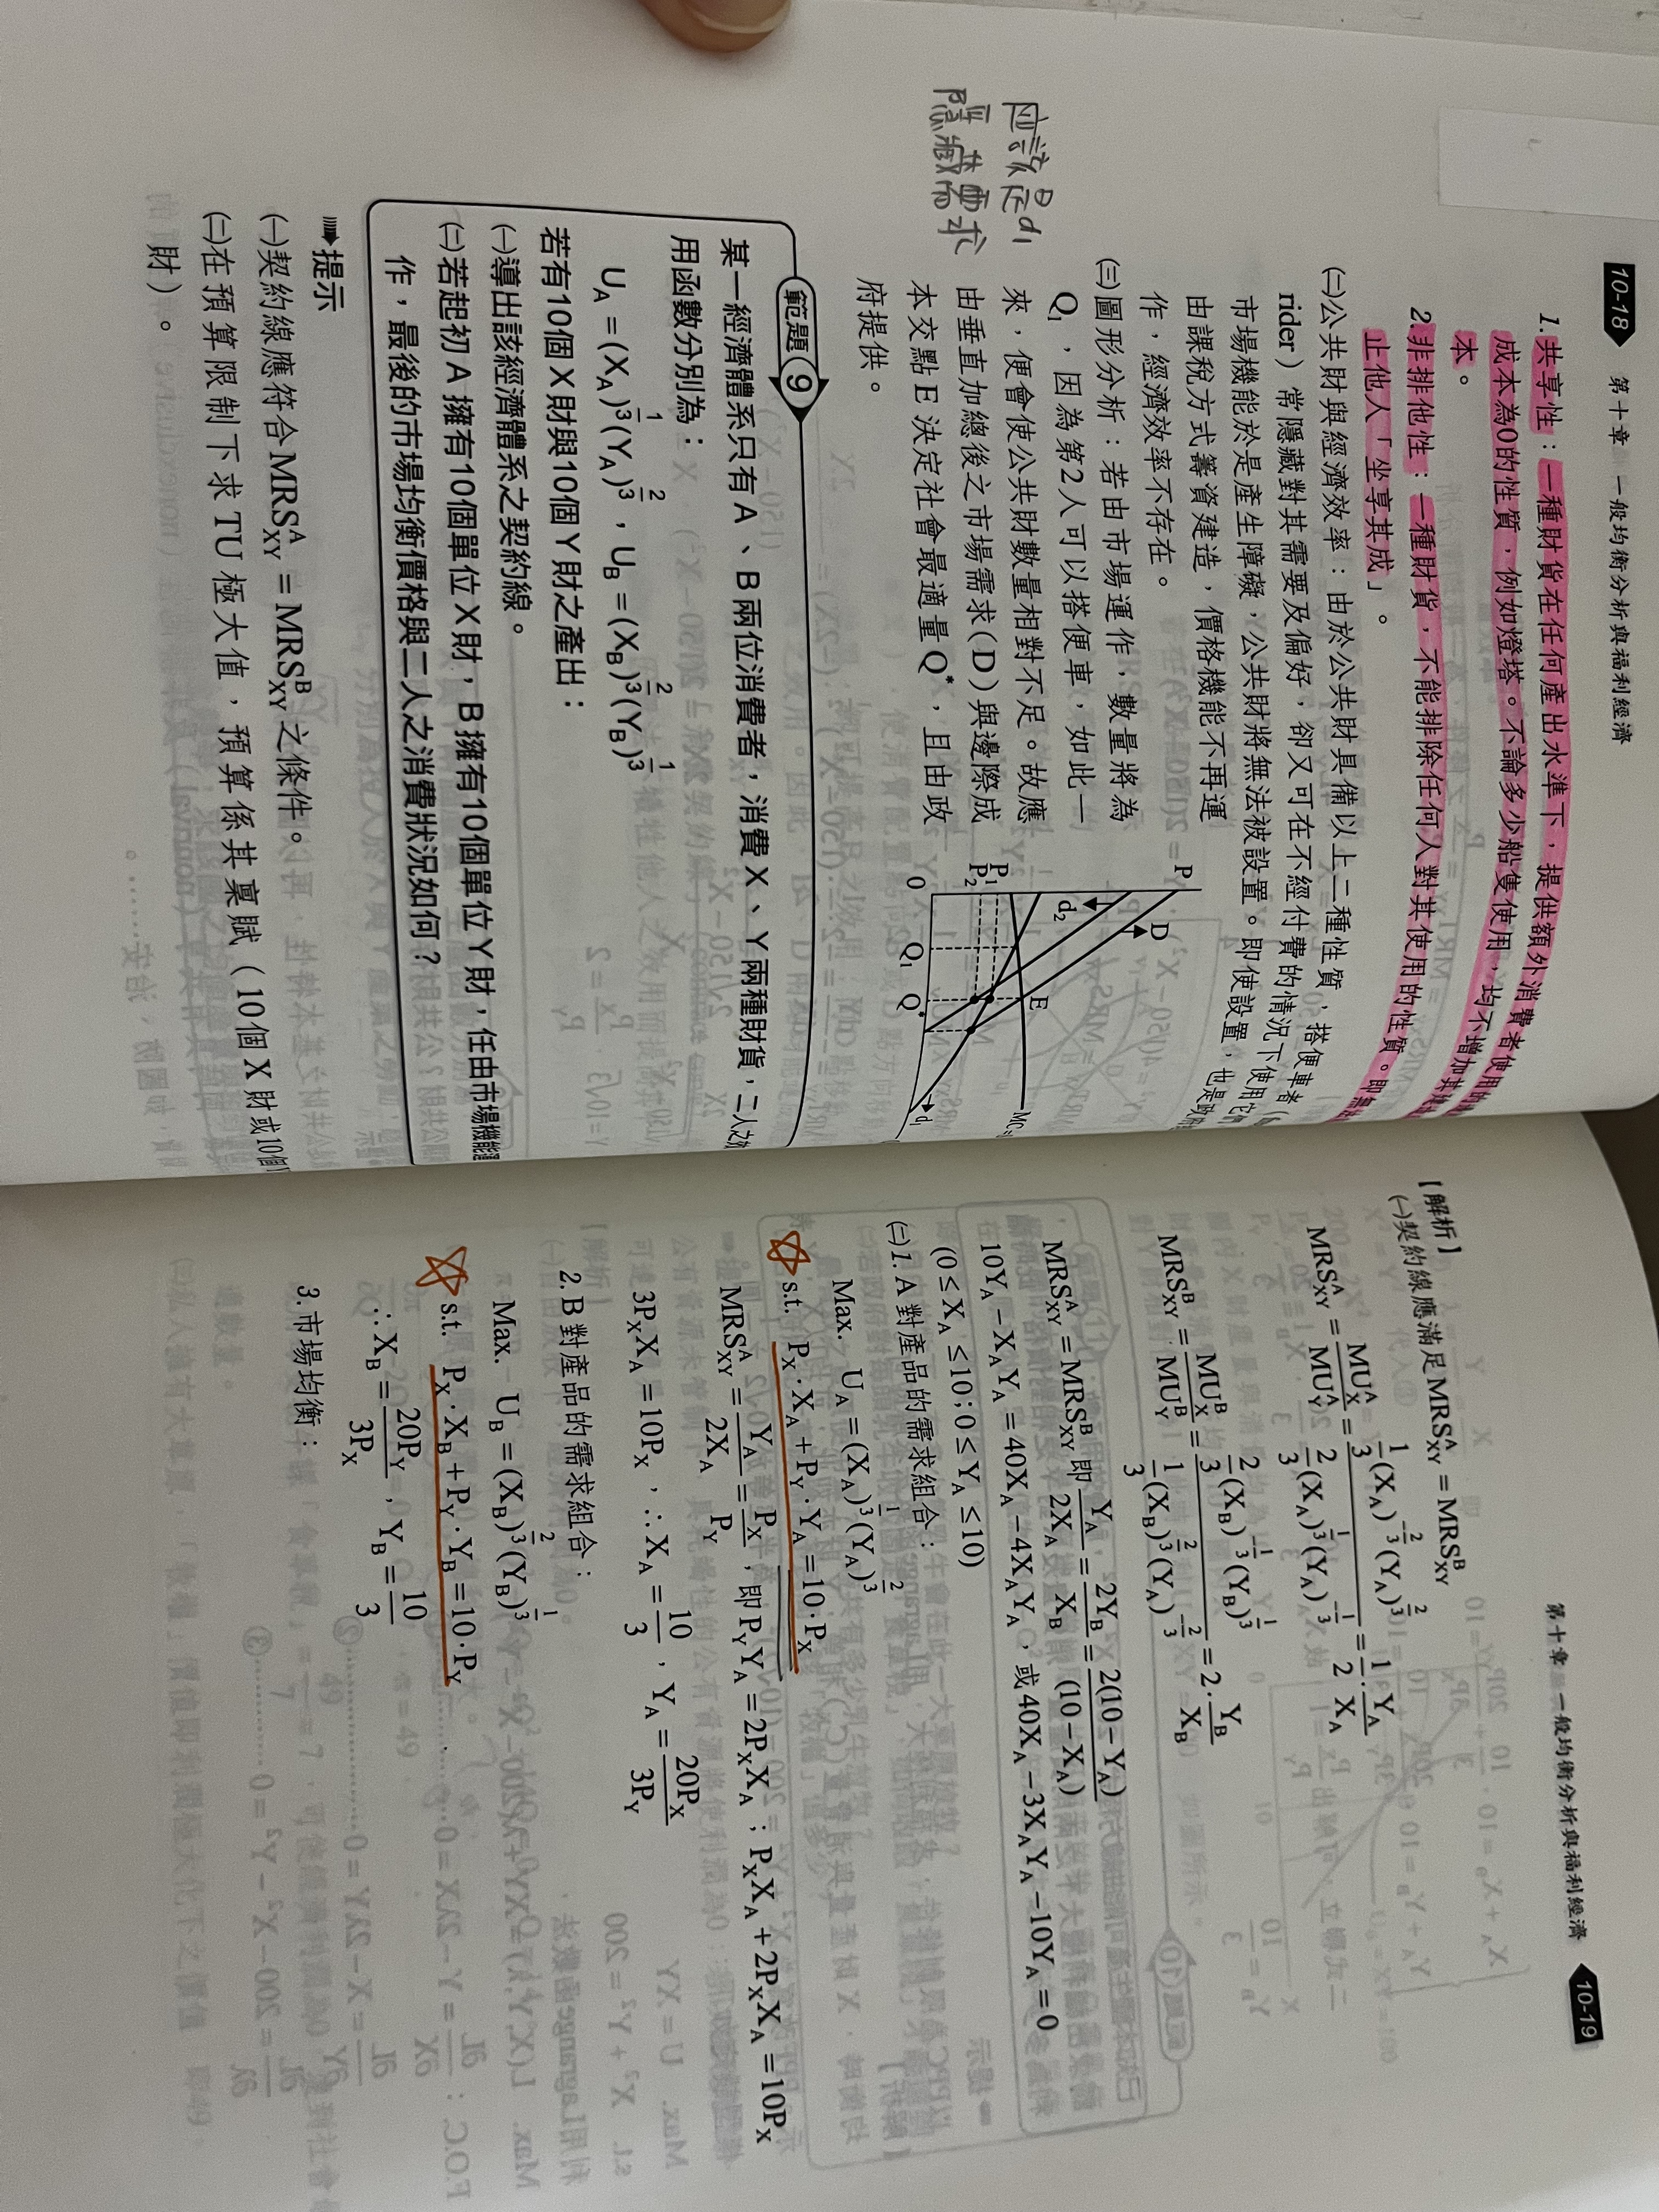 10-18 第十章 一般均衡分析與福利經濟
1.共享性：一種財貨在任何產出水準下，提供額外消費者使用的
成本為0的性質，例如燈塔。不論多少船隻使用，均不增加其
本。
2.非排他性：一種財貨，不能排除任何人對其使用的性質。即
止他人「坐享其成」。
㈡公共財與經濟效率：由於公共財具備以上二種性質，搭便車者
rider）常隱藏對其需要及偏好，卻又可在不經付費的情況下使用它
市場機能於是產生障礙，公共財將無法被設置。即使設置，也是
由課稅方式籌資建造，價格機能不再運
作，經濟效率不存在。
㈢圖形分析：若由市場運作，數量將為
Q₁，因為第2人可以搭便車，如此一
來，便會使公共財數量相對不足。故應
由垂直加總後之市場需求(D)與邊際成
本交點E決定社會最適量Q*，且由政
府提供。
應該是d₁
隱藏需求
P
D
d₂
P₁
P₂
E
MC
d₁
0
Q₁
Q*
範題 9
某一經濟體系只有A、B兩位消費者，消費X、Y兩種財貨，二人之
用函數分別為：
U_A = (X_A)^{1/3}(Y_A)^{2/3}，U_B = (X_B)^{2/3}(Y_B)^{1/3}
若有10個X財與10個Y財之產出：
㈠導出該經濟體系之契約線。
㈡若起初A擁有10個單位X財，B擁有10個單位Y財，任由市場機能
作，最後的市場均衡價格與二人之消費狀況如何？
提示
㈠契約線應符合MRS^A_{XY} = MRS^B_{XY}之條件。
㈡在預算限制下求TU極大值，預算係其稟賦（10個X財或10個
財）。
第十章 一般均衡分析與福利經濟 10-19
【解析】
㈠契約線應滿足MRS^A_{XY} = MRS^B_{XY}
MRS^A_{XY} = MU^A_X / MU^A_Y = \frac{1}{3}(X_A)^{-2/3}(Y_A)^{2/3} / \frac{2}{3}(X_A)^{1/3}(Y_A)^{-1/3} = \frac{1}{2}·\frac{Y_A}{X_A}
MRS^B_{XY} = MU^B_X / MU^B_Y = \frac{2}{3}(X_B)^{-1/3}(Y_B)^{1/3} / \frac{1}{3}(X_B)^{2/3}(Y_A)^{-2/3} = 2·\frac{Y_B}{X_B}
MRS^A_{XY} = MRS^B_{XY} 即 \frac{Y_A}{2X_A} = \frac{2Y_B}{X_B} = \frac{2(10-Y_A)}{(10-X_A)}
10Y_A − X_A Y_A = 40X_A − 4X_A Y_A，或40X_A − 3X_A Y_A − 10Y_A = 0
(0 ≤ X_A ≤ 10；0 ≤ Y_A ≤ 10)
㈡1. A對產品的需求組合：
Max. U_A = (X_A)^{1/3}(Y_A)^{2/3}
s.t. P_X·X_A + P_Y·Y_A = 10·P_X
MRS^A_{XY} = \frac{Y_A}{2X_A} = \frac{P_X}{P_Y}，即P_Y Y_A = 2P_X X_A；P_X X_A + 2P_X X_A = 10P_X
3P_X X_A = 10P_X，∴X_A = \frac{10}{3}，Y_A = \frac{20P_X}{3P_Y}
2. B對產品的需求組合：
Max. U_B = (X_B)^{2/3}(Y_B)^{1/3}
s.t. P_X·X_B + P_Y·Y_B = 10·P_Y
∴X_B = \frac{20P_Y}{3P_X}，Y_B = \frac{10}{3}
3.市場均衡：